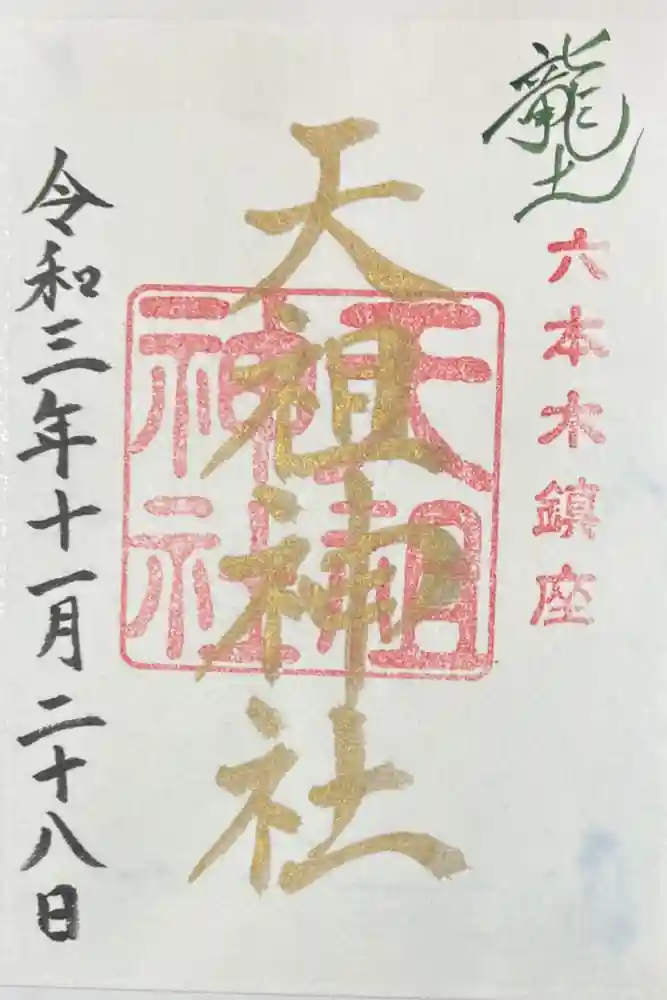 龍土
六本木鎮座
天祖神社
天祖神社
令和三年十一月二十八日